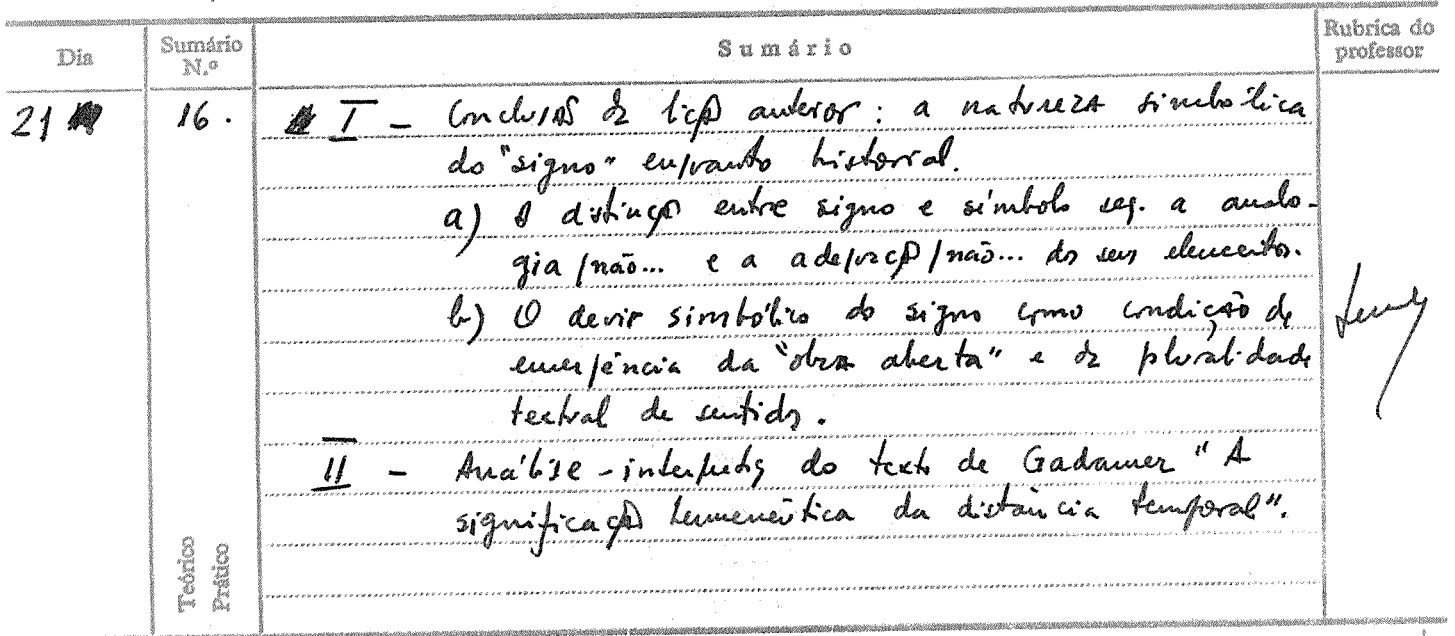 Dia
Sumário N.º
Sumário
Rubrica do professor
21
16.
I - Conclusão da lição anterior: a natureza simbólica
do "signo" enquanto historial.
a) A distinção entre signo e símbolo seg. a analo-
gia/não... e a adequação/não... dos seus elementos.
b) O devir simbólico do signo como condição de
emergência da "obra aberta" e da pluralidade
textual de sentidos.
II - Análise-interpretação do texto de Gadamer "A
significação hermenêutica da distância temporal".
Teórico
Prático